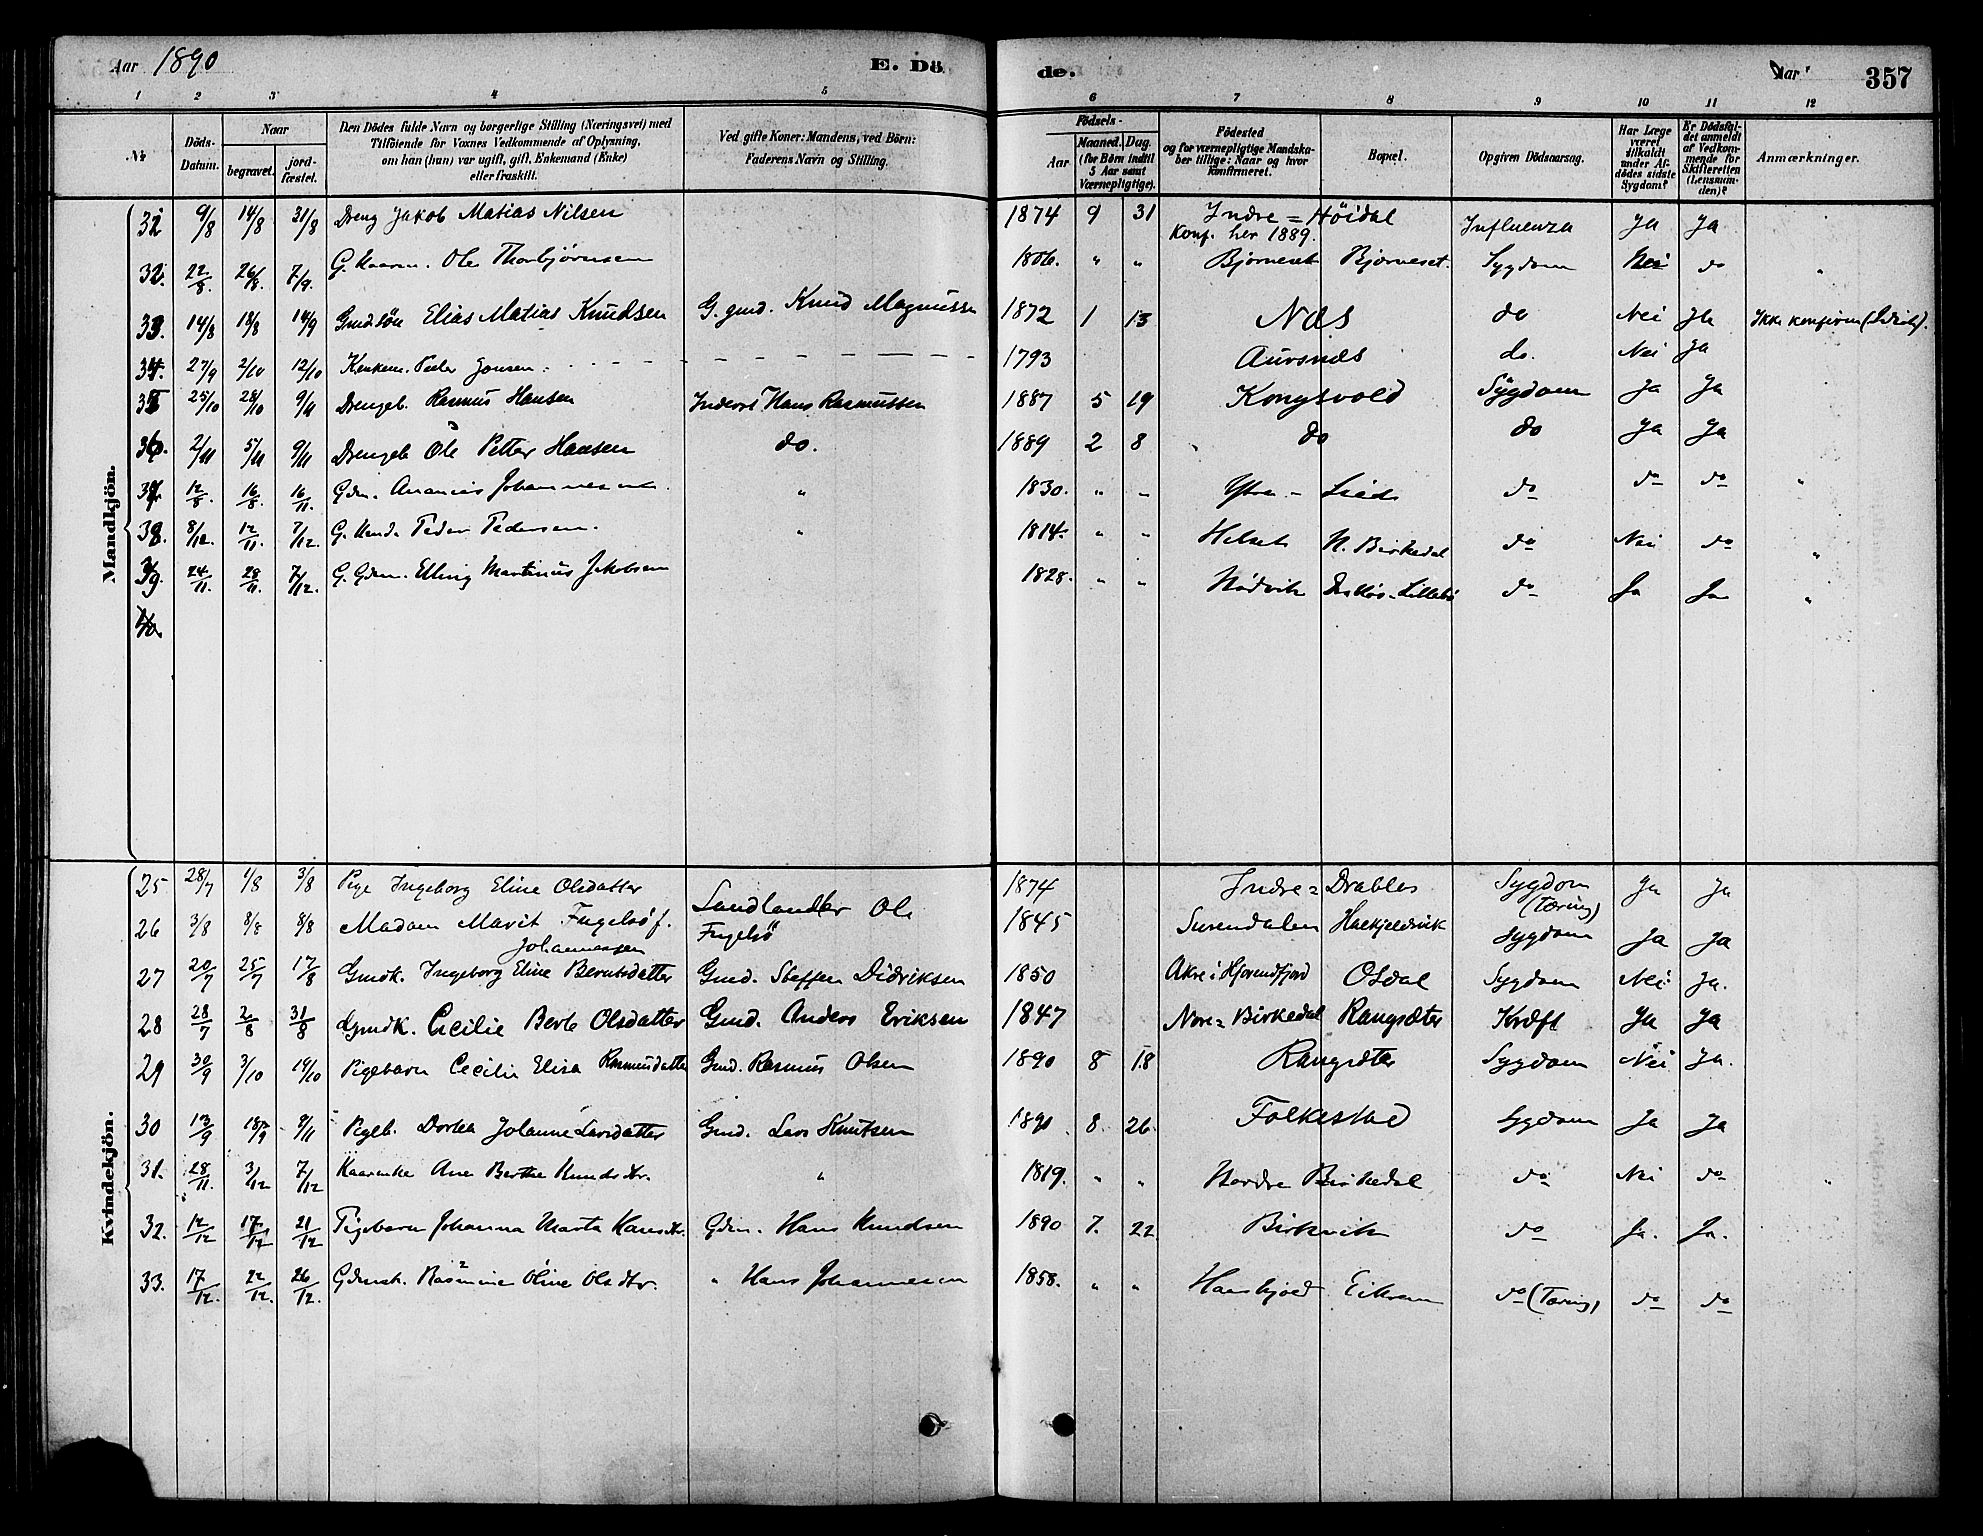 Aar 1890 E. Dö de. Aar 357
1 2 3 4 5 6 7 8 9 10 11 12
№ Döds-Datum. Naar begravet. jordfæstet. Den Dödes fulde Navn og borgerlige Stilling (Næringsvei) med Tilföiende for Voxnes Vedkommende af Oplysning, om han (hun) var ugift, gift, Enkemand (Enke) eller fraskilt. Ved gifte Koner: Mandens, ved Börn: Faderens Navn og Stilling. Födsels- Aar Maaned. Dag. (for Børn indtil 5 Aar samt Værnepligtige). Födested og for værnepligtige Mandskaber tillige: Naar og hvor konfirmeret. Bopæl. Opgiven Dödsaarsag. Har Læge været tilkaldt under Afdödes sidste Sygdom? Er Dödsfaldet anmeldt af Vedkommende for Skifteretten (Lensmanden)? Anmærkninger.
Mandkjön.
9/8 14/8 31/8 Dreng Jakob Matias Nilsen 1874 9 31 Indre = Höidal Influenza Ja Ja "
Konf. her 1889.
32. 22/8 26/8 7/9. G. Kaarm. Ole Thorbjörnsen 1806. " " Bjørneset Bjørneset. Sygdom Nei do "
33. 14/8 18/8 14/9 Gmdsön Elias Matias Knudsen G. gmd. Knud Magnussen 1872 1 13 Næs do Nei Ja Ikke konfirm (Idiot).
34. 27/9 2/10 12/10 Peder Jonsen. 1793 Aursnes do. Nei Ja
35 25/10 28/10 9/11 Drengeb. Rasmus Hansen Inderst Hans Rasmussen 1887 5 19 Kongsvold Sygdom Ja Ja
36. 2/11 5/11 9/11 Drengeb Ole Petter Hansen do. 1889 2 8 do do Ja Ja
37. 12/8. 16/8. 16/11. Gdm. Ananias Johannessen " 1830. " " Ytre - do do do "
38. 8/12. 12/11. 7/12. G. Kaard. Peder Pedersen. " 1814. " " Helset N. Birkedal do Nei do "
39. 24/11. 28/11. 7/12. G. Gdm. Elling Martinus Jakobsen 1828. " " Nödvik Lillebö do Ja Ja "
Kvindekjön.
25 28/7 1/8 3/8 Pige Ingeborg Eline Olsdatter 1874 Indre = Drabløs Sygdom (Tæring) Ja Ja
26 3/8 8/8 8/8 Madam Marit Fugelsö f. Johannessen Landhandler Ole Fugelsö 1845 Surendalen Haekjeldsvik Sygdom Ja Ja
27 20/7 25/7 17/8 Gmdk. Ingeborg Eline Berntsdatter Gmd. Steffen Didriksen 1850 Akre i Hjørundfjord Osdal Sygdom Nei Ja.
28 28/7 2/8 31/8 Gmdk. Cecilie Berte Olsdatter Gmd. Anders Eriksen 1847 Nore = Birkedal Rangsæter Kræft Ja Ja
29 30/9 3/10 19/10 Pigebarn Cecilie Elisa Rasmusdatter Gmd. Rasmus Olsen 1890 8 18 Rangsæter Sygdom Nei Ja.
30 13/9 18/9 9/11 Pigeb. Dorlea Johanne Larsdatter Gmd. Lars Knutsen 1890 8. 26. Folkestad Sygdom Ja Ja
31. 28/11. 3/12 7/12 Kaarenke Ane Berthe Knudsdtr. " 1819. " " Nordre Birkedal do Nei do "
32. 12/12 17/12 21/12 Pigebarn Johanna Marta Hansdtr. Gdm. Hans Knudsen 1890 7. 22 Birkvik do Ja. Ja.
33. 17/12. 22/12. 26/12. Gdmsk. Rasmine Oline Olsdtr. " Hans Johannessen 1858. " " Eikrem do (Tæring) do do